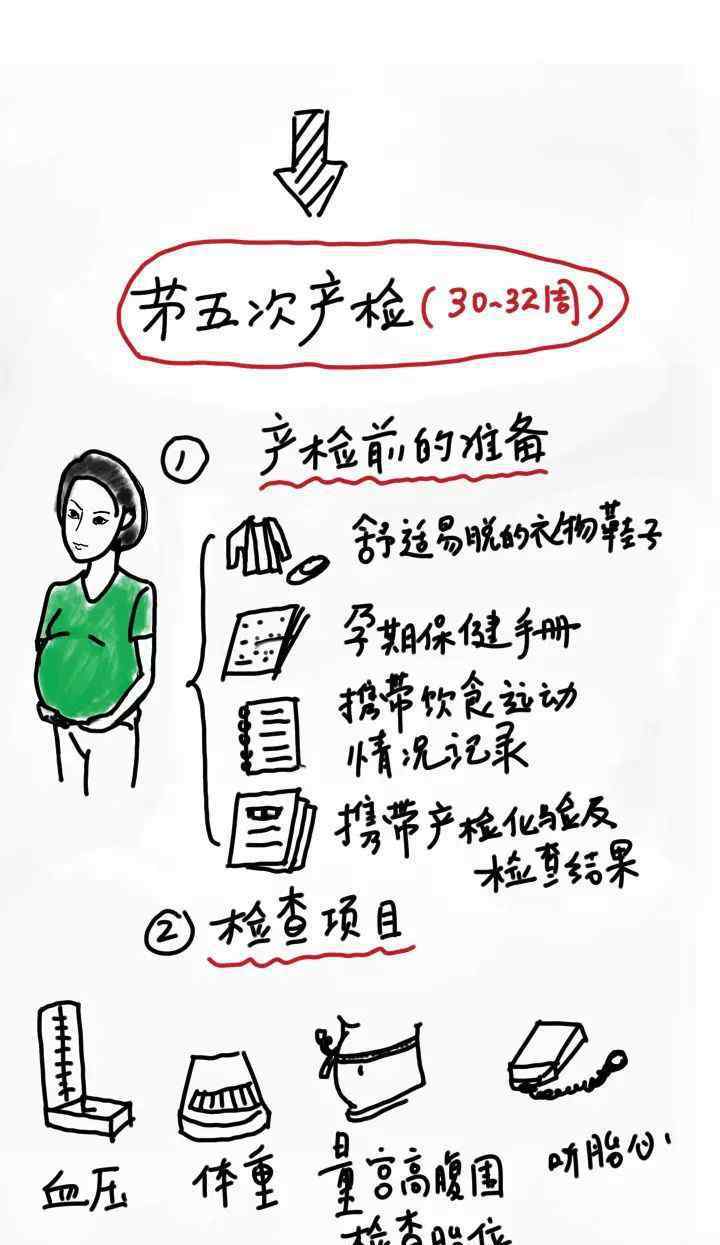 第五次产检(30~32周)
① 产检前的准备
舒适易脱的衣物鞋子
孕期保健手册
携带饮食运动
情况记录
携带产检化验及
检查结果
② 检查项目
血压
体重
量宫高腹围
检查胎位
听胎心